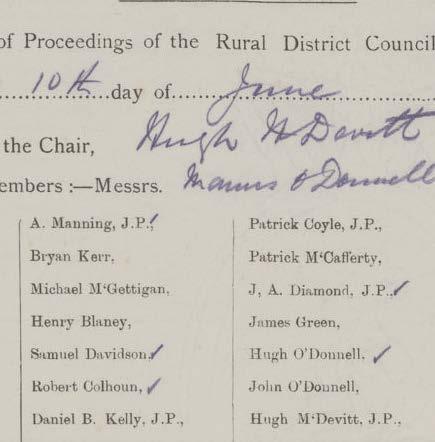 of Proceedings of the Rural District Council
10th day of June
the Chair, Hugh McDevitt
embers :—Messrs. Manus O'Donnell
A. Manning, J.P.,
Bryan Kerr,
Michael M'Gettigan,
Henry Blaney,
Samuel Davidson,
Robert Colhoun,
Daniel B. Kelly, J.P.,
Patrick Coyle, J.P.,
Patrick M'Cafferty,
J, A. Diamond, J.P.,
James Green,
Hugh O'Donnell,
John O'Donnell,
Hugh M'Devitt, J.P.,